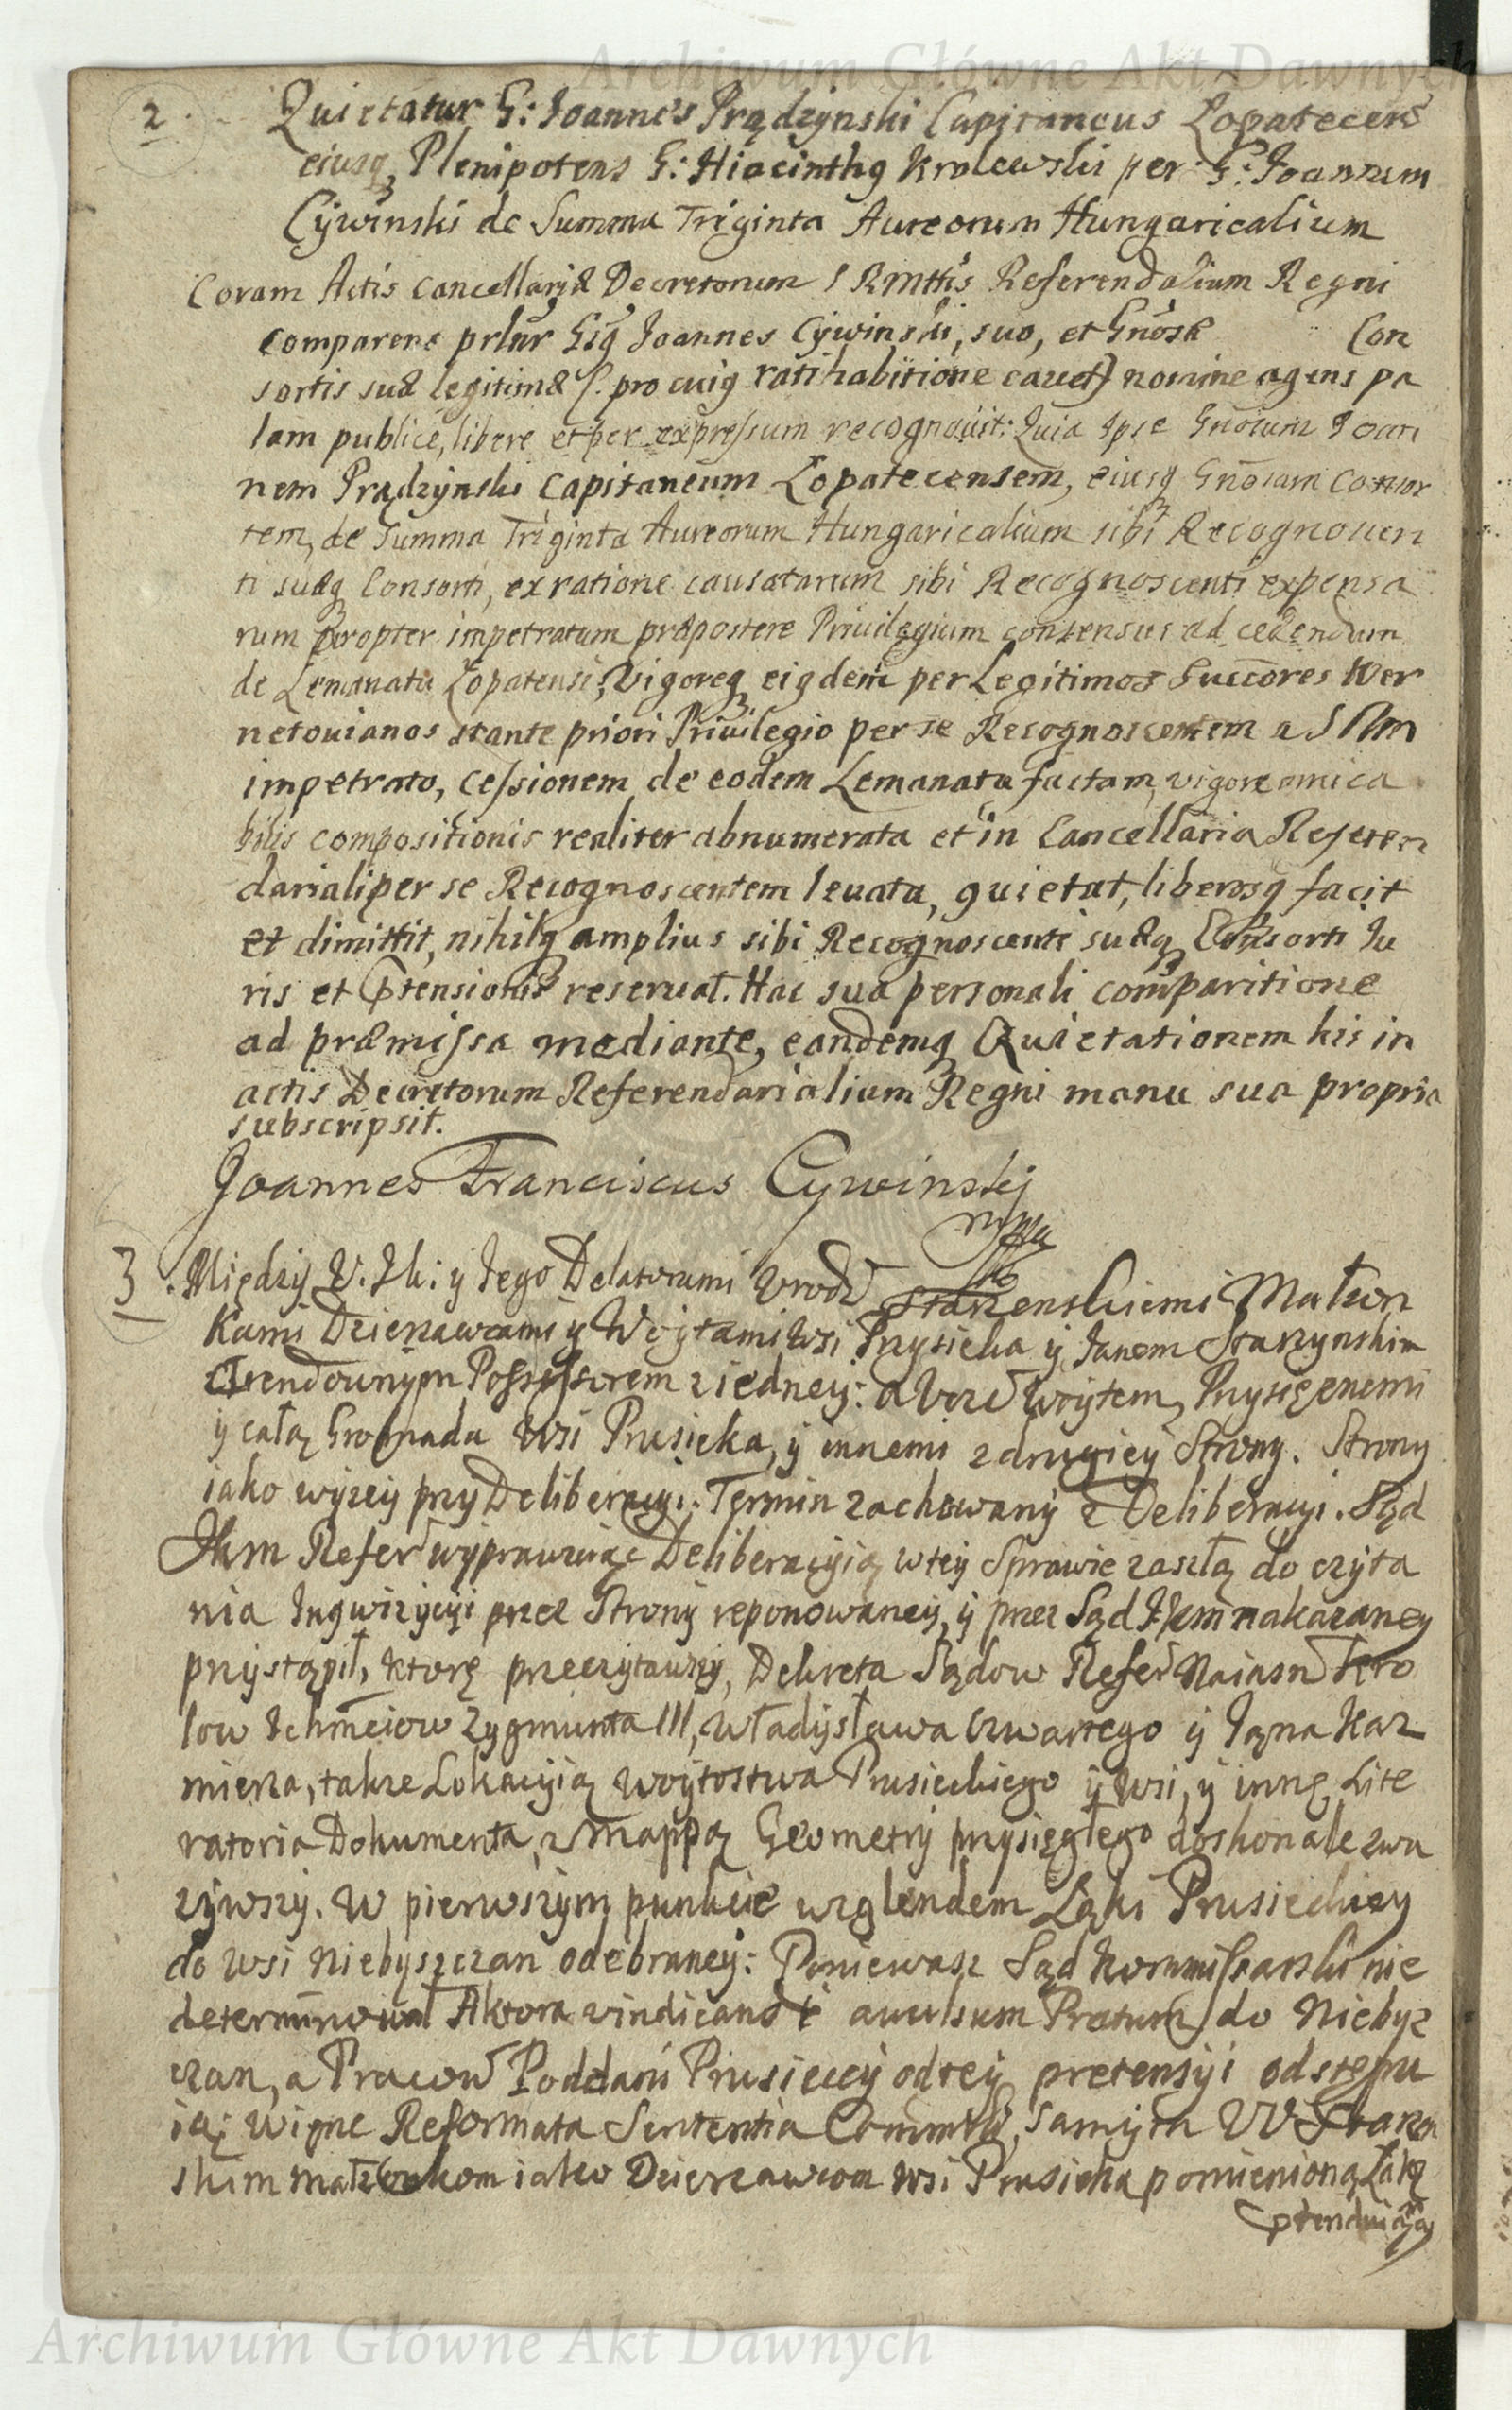 Archiwum Główne Akt Dawnych
2. Quietatur G: Joannes Prądzynski Capitaneus Lopatecens
eiusq Plenipotens G: Hiacinthq Krolewski per G: Joannem
Cÿwinski de Summa Triginta Aureorum Hungaricalium
Coram Actis Cancellariæ Decretorum S RMttis Referendalium Regni
comparens prlnr Gsq Joannes Cÿwinski, suo, et Gnosæ Con
sortis suæ legitimæ (: pro cuiq ratihabitione cavet) nomine agens pa
lam publice, libere et per expressum recognouit: Quia Ipse Gnosum Joan
nem Prądzynski Capitaneum Lopatecensem, eiusq Gnosam Consor
tem, de Summa Triginta Aureorum Hungaricalium sibi Recognoscen
ti suæq Consorti, ex ratione causatarum sibi Recognoscenti expensa
rum propter impetratum præpostere Priuilegium consensus ad cedendum
de Lemanatu Lopatensi, Vigoreq eiqdem per Legitimos Succores Wer
netouianos stante priori Priuilegio per se Recognoscentem a SRM
impetrato, cessionem de eodem Lemanatu factam, vigore amica
bilis compositionis realiter abnumerata et in Cancellaria Referen
dariali per se Recognoscentem leuata, quietat, liberosq facit
et dimittit, nihilq amplius sibi Recognoscenti suæq Consorti Ju
ris et ptensionis reseruat. Hac sua personali comparitione
ad præmissa mediante, eandemq Quietationem his in
actis Decretorum Referendarialium Regni manu sua propria
subscripsit.
Joannes Franciscus Cywinskj
mppa
3. Międzÿ V. Jk: ÿ Jego Delatorami Vrodz Starzenskiemi Małżon
kami Dzierzawcami ÿ Woÿtami Wsi Prusieka ÿ Janem Starzynskim
Arendownym Possessorem z iedneÿ: a Woÿtem, Przysięznemi
ÿ całą Gromadą Wsi Prusieka, ÿ innemi z drugieÿ Strony. Strony
iako wyzeÿ przy Deliberacyi. Termin zachowany z Deliberacyi. Sąd
JKm Refer wyprawuiąc Deliberacyią w teÿ Sprawie zaszłą do czyta
nia Inqwizycyi przez Stronÿ reponowaneÿ, ÿ przez Sąd JKm nakazaney
przystąpił, którę przeczytawszÿ, Dekreta Sądow Refer Naiasn Kro
low Jchmciow Zygmunta III, Władysława Czwartego ÿ Jana Kaz
mierza, takze Lokacyią Woÿtostwa Prusieckiego ÿ Wsi, ÿ innę Lite
ratoria Dokumenta, z Mappą Geometrÿ przysięgłego doskonale zwa
zÿwszÿ. W pierwszym punkcie wzglendem Łąki Prusieckiey
do Wsi Niebyszczan odebraneÿ: Poniewasz Sąd Kommissarski nie
determinował Aktora vindicandi avulsum Pratum do Niebysz
czan, a Pracow Poddani Prusieccÿ od teÿ pretensyi odstępu
ią; Więc Reformata Sententia Commis, samym VV Starzen
skim Małżonkom iako Dzierzawcom wsi Prusieka pomienioną Łąkę
ptenduiąc
Archiwum Główne Akt Dawnych